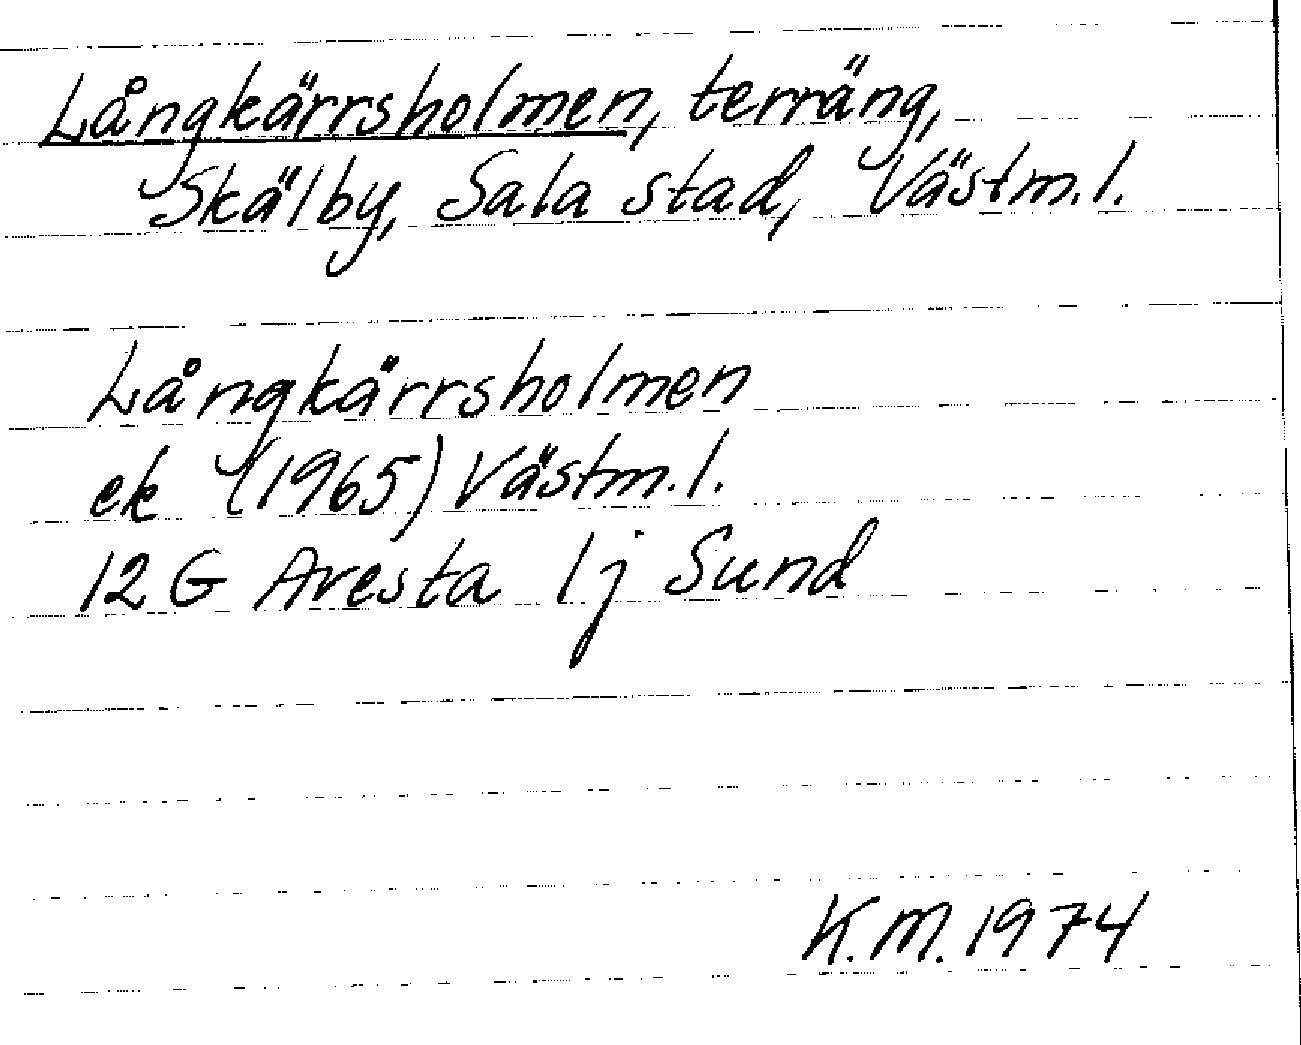 Långkärrsholmen, terräng,
Skälby, Sala stad, Västm.l.
Långkärrsholmen
ek (1965) Västm.l.
12 G Avesta 1j Sund
K.M. 1974